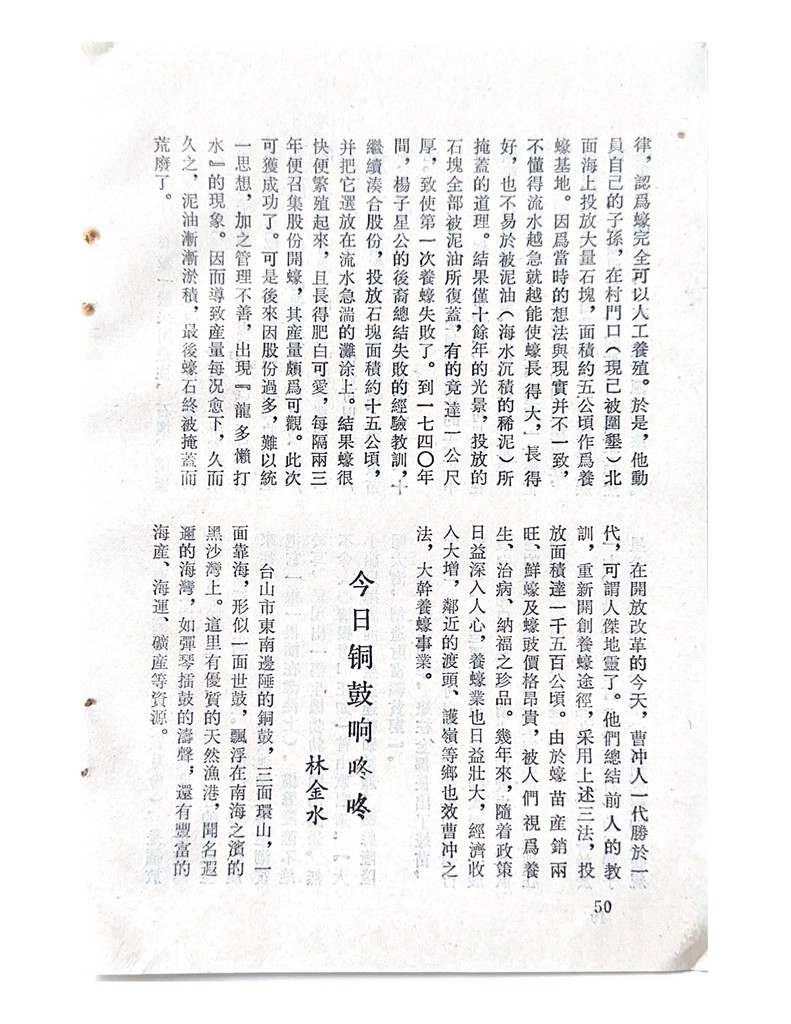 律，認爲蠔完全可以人工養殖。於是，他動
員自己的子孫，在村門口（現已被圍墾）北
面海上投放大量石塊，面積約五公頃作爲養
蠔基地。因爲當時的想法與現實并不一致，
不懂得流水越急就越能使蠔長得大，長得
好，也不易於被泥油（海水沉積的稀泥）所
掩蓋的道理。結果僅十餘年的光景，投放的
石塊全部被泥油所復蓋，有的竟達一公尺
厚，致使第一次養蠔失敗了。到一七四〇年
間，楊子星公的後裔總結失敗的經驗教訓，
繼續湊合股份，投放石塊面積約十五公頃，
并把它選放在流水急湍的灘涂上。結果蠔很
快便繁殖起來，且長得肥白可愛，每隔兩三
年便召集股份開蠔，其産量頗爲可觀。此次
可獲成功了。可是後來因股份過多，難以統
一思想，加之管理不善，出現『龍多懶打
水』的現象。因而導致産量每况愈下，久而
久之，泥油漸漸淤積，最後蠔石終被掩蓋而
荒廢了。
在開放改革的今天，曹冲人一代勝於一
代，可謂人傑地靈了。他們總結前人的教
訓，重新開創養蠔途徑，采用上述三法，投
放面積達一千五百公頃。由於蠔苗産銷兩
旺、鮮蠔及蠔豉價格昂貴，被人們視爲養
生、治病、納福之珍品。幾年來，隨着政策
日益深入人心，養蠔業也日益壯大，經濟收
入大增，鄰近的渡頭、護嶺等鄉也效曹冲之
法，大幹養蠔事業。
今日铜鼓响咚咚
林金水
台山市東南邊陲的銅鼓，三面環山，一
面靠海，形似一面世鼓，飄浮在南海之濱的
黑沙灣上。這里有優質的天然漁港，聞名遐
邇的海灣，如彈琴擂鼓的濤聲，還有豐富的
海産、海運、礦産等資源。
50